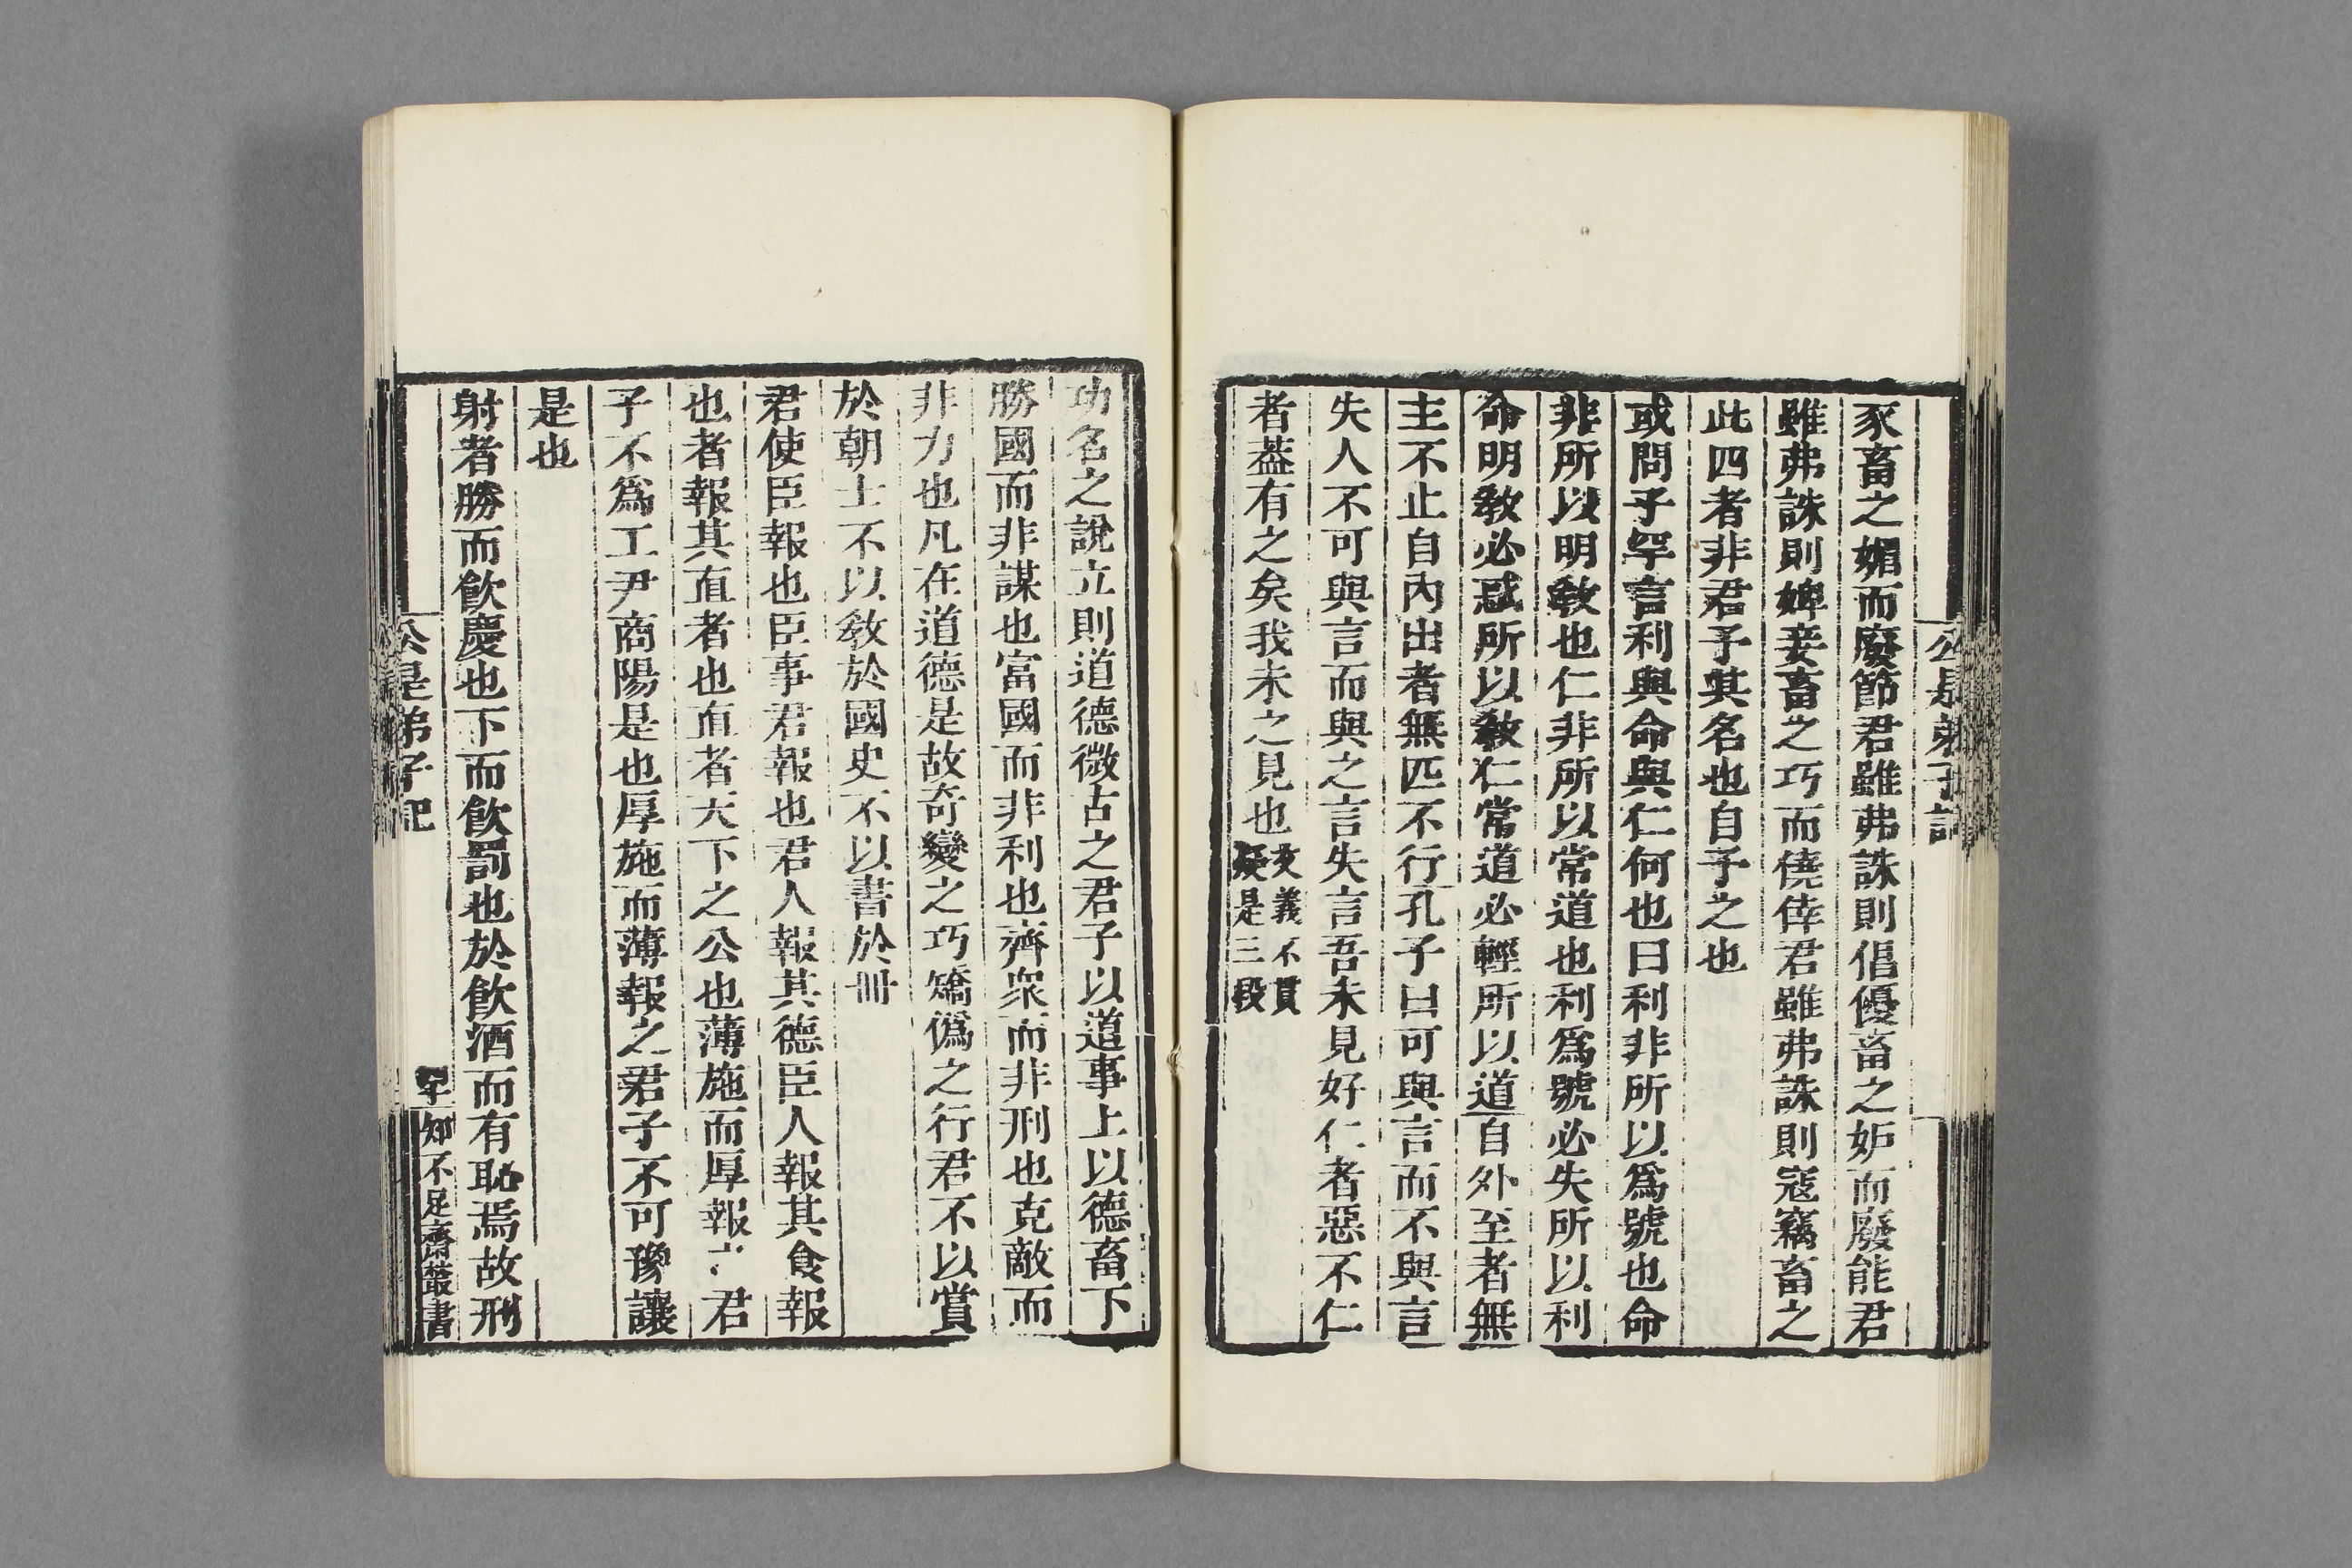 公是弟子記
豕畜之媚而廢節君雖弗誅則倡優畜之妒而廢能君
雖弗誅則婢妾畜之巧而僥倖君雖弗誅則寇竊畜之
此四者非君予其名也自予之也
或問子罕言利與命與仁何也曰利非所以爲號也命
非所以明敎也仁非所以常道也利爲號必失所以利
命明敎必惑所以敎仁常道必輕所以道自外至者無
主不止自內出者無匹不行孔子曰可與言而不與言
失人不可與言而與之言失言吾未見好仁者惡不仁
者葢有之矣我未之見也
文義不貫
疑是三段
功名之說立則道德微古之君子以道事上以德畜下
勝國而非謀也富國而非利也齊衆而非刑也克敵而
非力也凡在道德是故奇變之巧矯僞之行君不以賞
於朝士不以敎於國史不以書於冊
君使臣報也臣事君報也君人報其德臣人報其食報
也者報其直者也直者天下之公也薄施而厚報 君
子不爲工尹商陽是也厚施而薄報之君子不可豫讓
是也
射者勝而飮慶也下而飮罰也於飮酒而有恥焉故刑
公是弟子記
知不足齋叢書